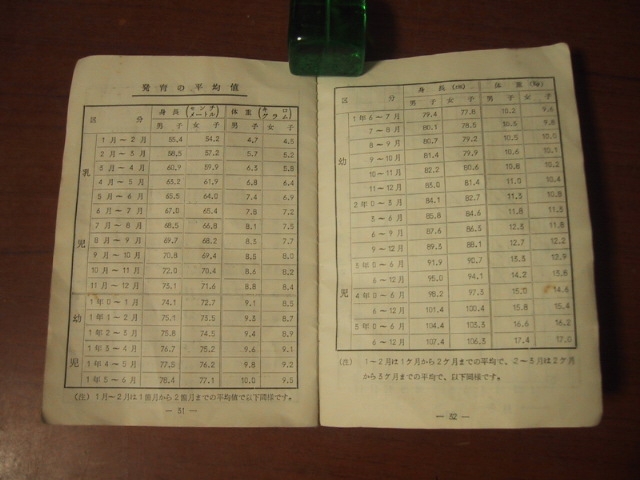 発育の平均値
区 分 身長(センチメートル) 体重(キログラム)
男子 女子 男子 女子
乳児
1月～2月 55.4 54.2 4.7 4.5
2月～3月 58.5 57.2 5.7 5.2
3月～4月 60.9 59.9 6.3 5.8
4月～5月 63.2 61.9 6.8 6.4
5月～6月 65.5 64.0 7.4 6.9
6月～7月 67.0 65.4 7.8 7.2
7月～8月 68.5 66.8 8.1 7.5
8月～9月 69.7 68.2 8.3 7.7
9月～10月 70.8 69.4 8.5 8.0
10月～11月 72.0 70.4 8.6 8.2
11月～12月 73.1 71.6 8.8 8.4
幼児
1年0～1月 74.1 72.7 9.1 8.5
1年1～2月 75.1 73.5 9.3 8.7
1年2～3月 75.8 74.5 9.4 8.9
1年3～4月 76.7 75.2 9.6 9.1
1年4～5月 77.5 76.2 9.8 9.2
1年5～6月 78.4 77.1 10.0 9.5
(注) 1月～2月は1箇月から2箇月までの平均値で以下同様です。
— 51 —
区 分 身長(cm) 体重(kg)
男子 女子 男子 女子
幼児
1年6～7月 79.4 77.8 10.2 9.6
7～8月 80.1 78.5 10.5 9.8
8～9月 80.7 79.2 10.5 10.0
9～10月 81.4 79.9 10.6 10.1
10～11月 82.2 80.6 10.8 10.2
11～12月 83.0 81.4 11.0 10.4
2年0～3月 84.1 82.7 11.3 10.8
3～6月 85.8 84.6 11.8 11.3
6～9月 87.6 86.3 12.3 11.8
9～12月 89.3 88.1 12.7 12.2
3年0～6月 91.9 90.7 13.3 12.9
6～12月 95.0 94.1 14.2 13.8
4年0～6月 98.2 97.3 15.0 14.6
6～12月 101.4 100.4 15.8 15.4
5年0～6月 104.4 103.3 16.6 16.2
6～12月 107.4 106.3 17.4 17.0
(注) 1～2月は1ケ月から2ケ月までの平均で、2～3月は2ケ月
から3ケ月までの平均で、以下同様です。
— 52 —